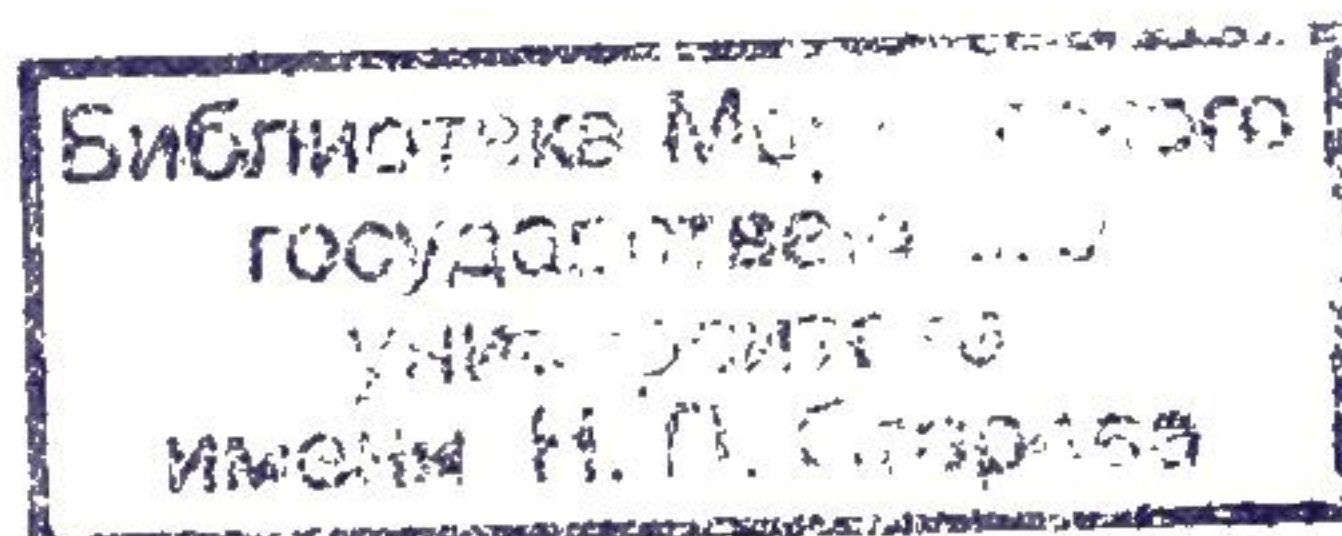 Библиотека Мордовского
государственного
университета
имени Н. П. Огарева